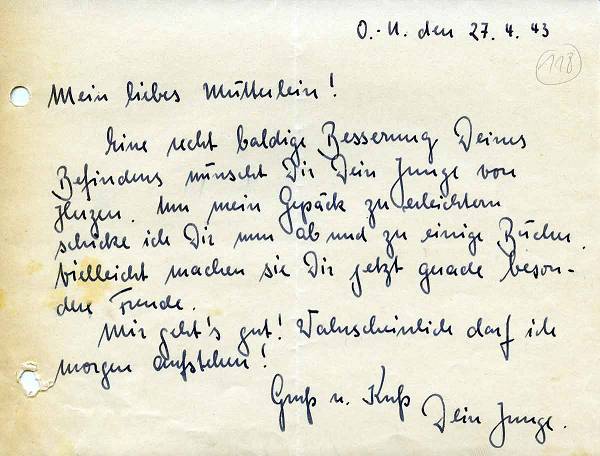 O.-U. den 27.4.43
118
Mein liebes Mütterlein!
Eine recht baldige Besserung Deines
Befindens wünscht Dir Dein Junge von
Herzen. Um mein Gepäck zu erleichtern
schicke ich Dir nun ab und zu einige Bücher.
Vielleicht machen sie Dir jetzt gerade beson-
dere Freude.
Mir geht's gut! Wahrscheinlich darf ich
morgen aufstehen!
Gruß u. Kuß
Dein Junge.